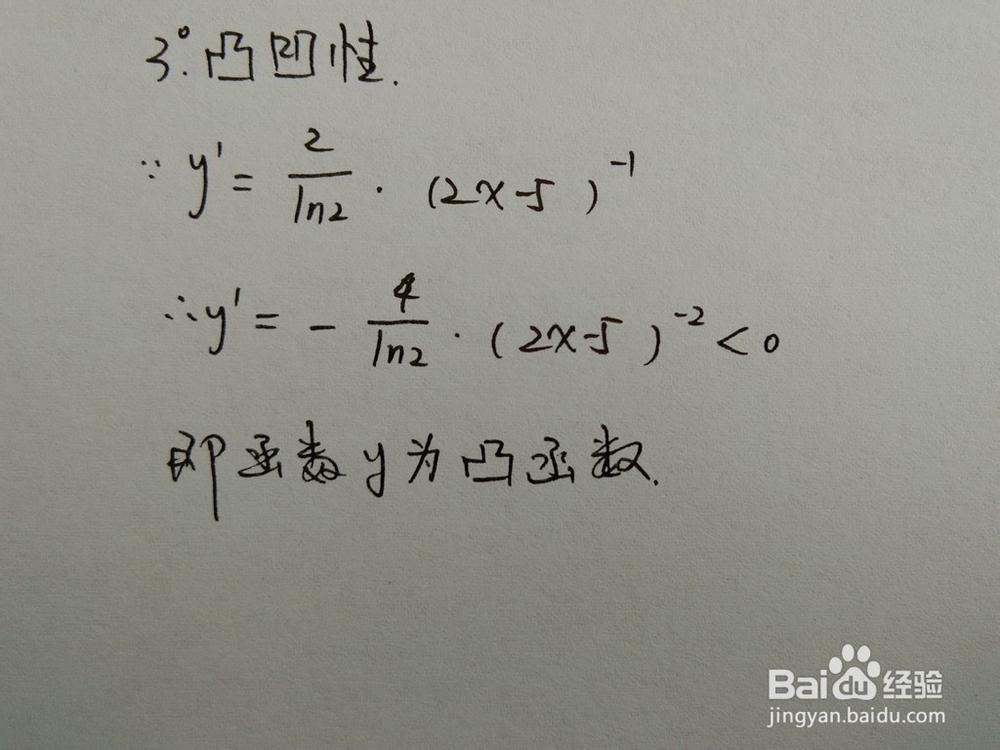 3°.凸凹性.
∵ y' = 2/ln2 · (2x-5)^-1
∴ y' = - 4/ln2 · (2x-5)^-2 < 0
即函数y为凸函数.
Bai du 经验
jingyan.baidu.com